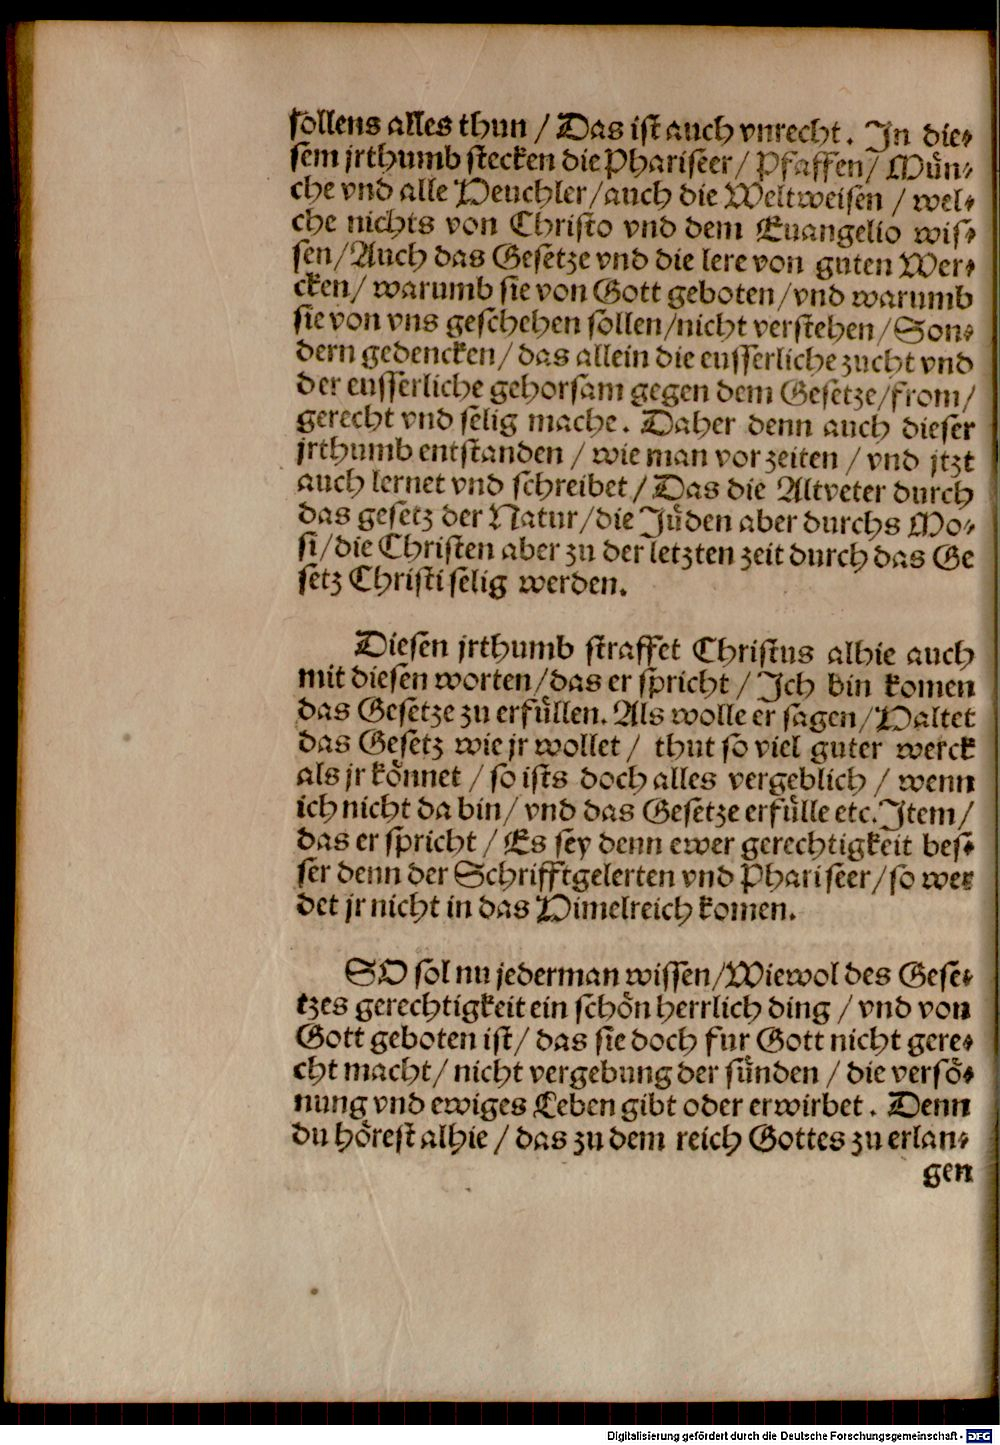 sollens alles thun / Das ist auch vnrecht. In die⸗
sem jrthumb stecken die Phariseer / Pfaffen / Mün⸗
che vnd alle Heuchler / auch die Weltweisen / wel⸗
che nichts von Christo vnd dem Euangelio wis⸗
sen / Auch das Gesetze vnd die lere von guten Wer⸗
cken / warumb sie von Gott geboten / vnd warumb
sie von vns geschehen sollen / nicht verstehen / Son⸗
dern gedencken / das allein die eusserliche zucht vnd
der eusserliche gehorsam gegen dem Gesetze / from /
gerecht vnd selig mache. Daher denn auch dieser
jrthumb entstanden / wie man vor zeiten / vnd jtzt
auch lernet vnd schreibet / Das die Altveter durch
das gesetz der Natur / die Jüden aber durchs Mo⸗
si / die Christen aber zu der letzten zeit durch das Ge
setz Christi selig werden.
Diesen jrthumb straffet Christus alhie auch
mit diesen worten / das er spricht / Ich bin komen
das Gesetze zu erfüllen. Als wolle er sagen / Haltet
das Gesetz wie jr wollet / thut so viel guter werck
als jr könnet / so ists doch alles vergeblich / wenn
ich nicht da bin / vnd das Gesetze erfülle etc. Item /
das er spricht / Es sey denn ewer gerechtigkeit bes⸗
ser denn der Schrifftgelerten vnd Phariseer / so wer
det jr nicht in das Himelreich komen.
SO sol nu jederman wissen / Wiewol des Gese⸗
tzes gerechtigkeit ein schön herrlich ding / vnd von
Gott geboten ist / das sie doch fur Gott nicht gere⸗
cht macht / nicht vergebung der sünden / die versö⸗
nung vnd ewiges Leben gibt oder erwirbet. Denn
du hörest alhie / das zu dem reich Gottes zu erlan⸗
gen
Digitalisierung gefördert durch die Deutsche Forschungsgemeinschaft - DFG